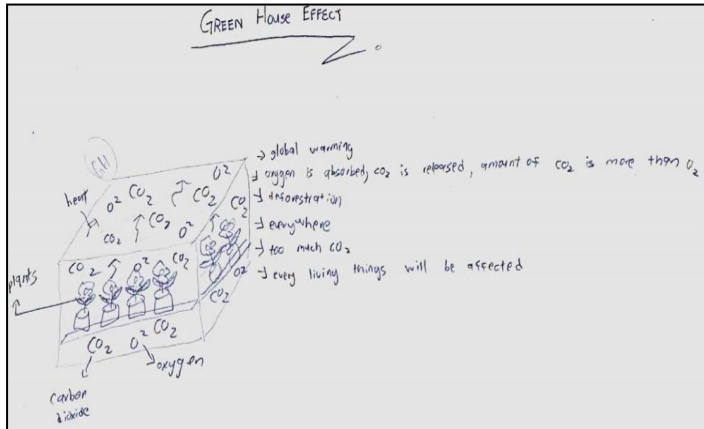 GREEN House EFFECT
GH
→ global warming
→ oxygen is absorbed, CO₂ is released, amount of CO₂ is more than O₂
→ deforestration
→ everywhere
→ too much CO₂
→ every living things will be affected
heat
O² CO₂ O²
CO₂
CO₂ CO₂ O²
CO₂
O²
CO₂ O² CO₂
plants
O²
CO₂
CO₂ O² CO₂
oxygen
carbon
dioxide